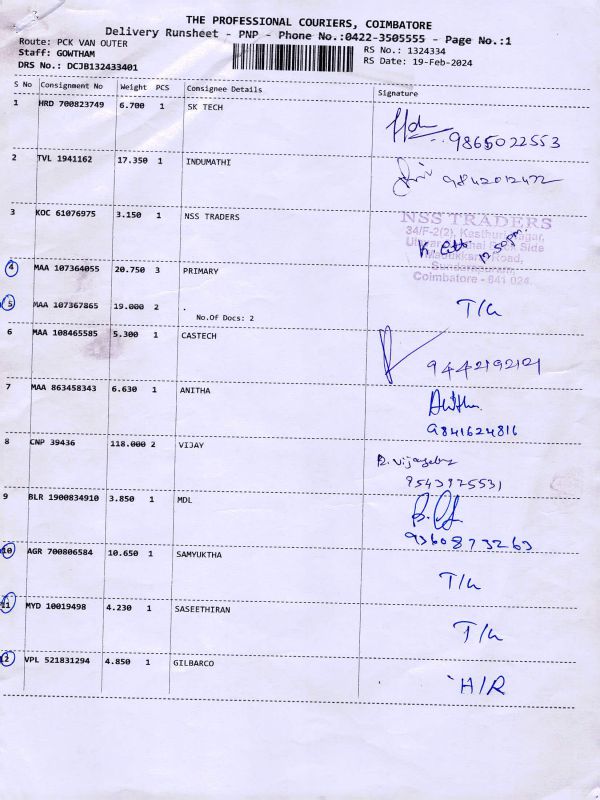 THE PROFESSIONAL COURIERS, COIMBATORE
Delivery Runsheet - PNP - Phone No.:0422-3505555 - Page No.:1
Route: PCK VAN OUTER RS No.: 1324334
Staff: GOWTHAM RS Date: 19-Feb-2024
DRS No.: DCJB132433401
S No Consignment No Weight PCS Consignee Details Signature
1 HRD 700823749 6.700 1 SK TECH
9865022553
2 TVL 1941162 17.350 1 INDUMATHI
9842012472
3 KOC 61076975 3.150 1 NSS TRADERS
NSS TRADERS
34/F-2(2), Kasthuri Nagar,
Side
Madukkarai Road,
Sundarapuram,
Coimbatore - 641 024.
12.50 pm.
4 MAA 107364055 20.750 3 PRIMARY
5 MAA 107367865 19.000 2 .
No.Of Docs: 2
T/L
6 MAA 108465585 5.300 1 CASTECH
9442192121
7 MAA 863458343 6.630 1 ANITHA
Anitha.
9841624816
8 CNP 39436 118.000 2 VIJAY
9543975531
9 BLR 1900834910 3.850 1 MDL
9360873263
10 AGR 700806584 10.650 1 SAMYUKTHA
T/L
11 MYD 10019498 4.230 1 SASEETHIRAN
T/L
12 VPL 521831294 4.850 1 GILBARCO
H/R